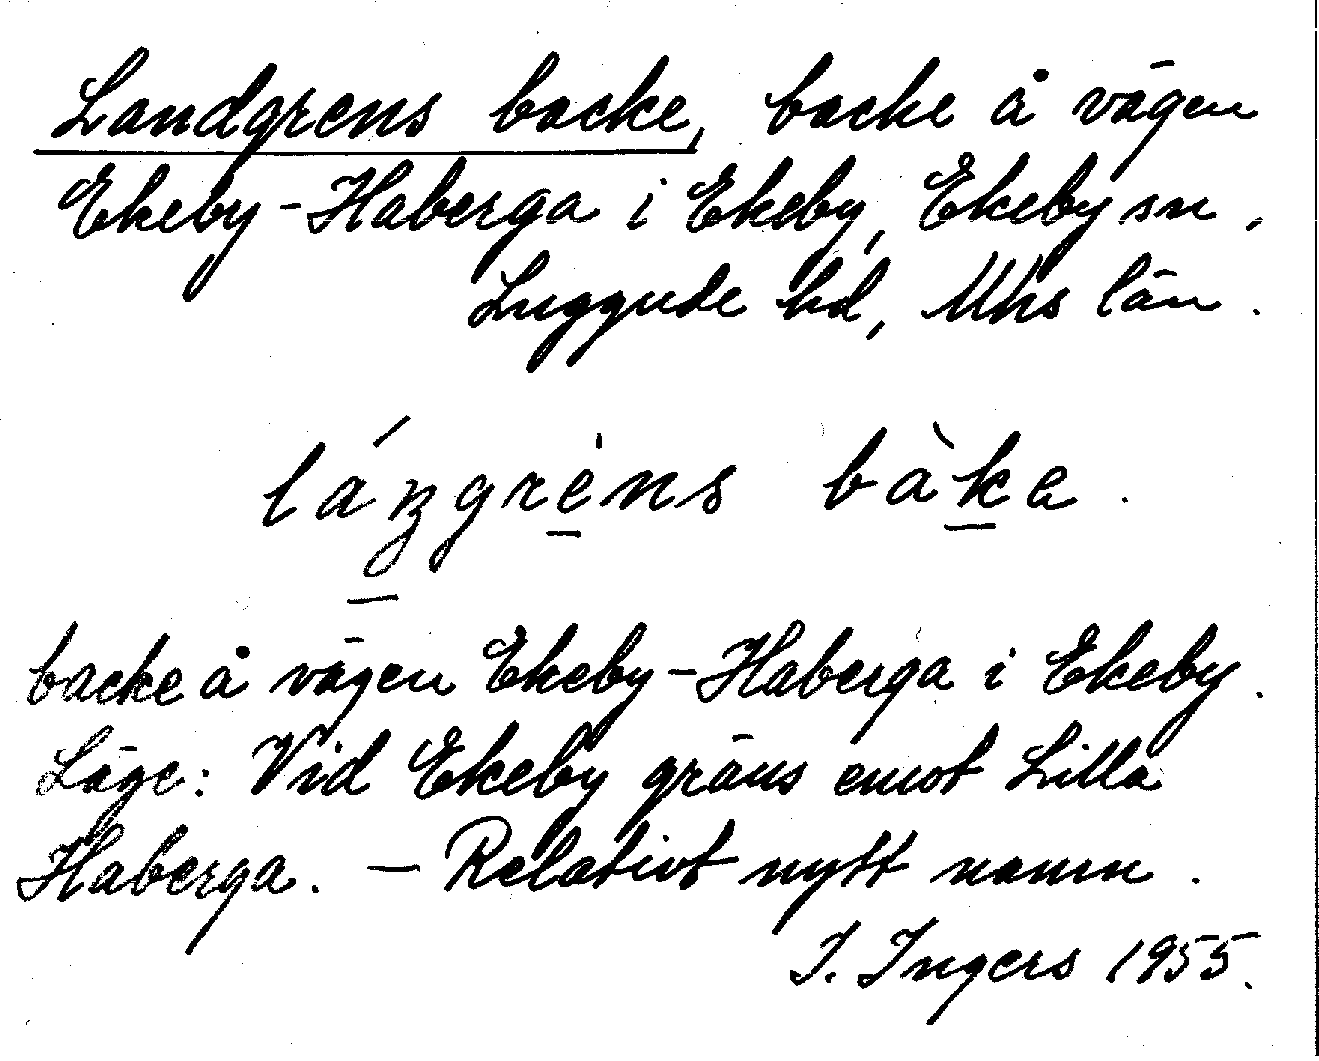 Landgrens backe, backe å vägen
Ekeby-Haberga i Ekeby, Ekeby sn.
Luggude hd, Mhs län.
backe å vägen Ekeby-Haberga i Ekeby.
Läge: Vid Ekeby gräns emot Lilla
Haberga. — Relativt nytt namn.
I. Ingers 1955.